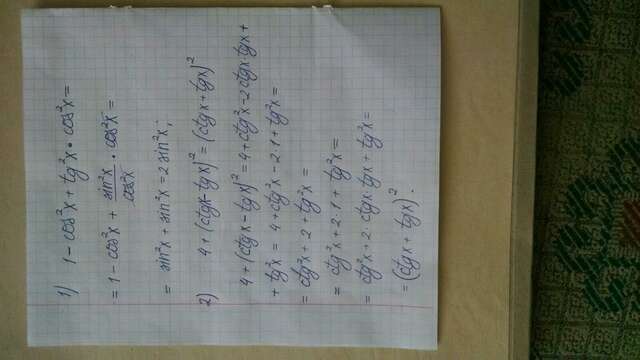 1) 1 - cos²x + tg²x · cos²x =
= 1 - cos²x + sin²x/cos²x · cos²x =
= sin²x + sin²x = 2 sin²x;
2) 4 + (ctgx - tgx)² = (ctgx + tgx)²
4 + (ctgx - tgx)² = 4 + ctg²x - 2ctgx·tgx +
+ tg²x = 4 + ctg²x - 2·1 + tg²x =
= ctg²x + 2 + tg²x =
= ctg²x + 2·1 + tg²x =
= ctg²x + 2·ctgx·tgx + tg²x =
= (ctgx + tgx)².